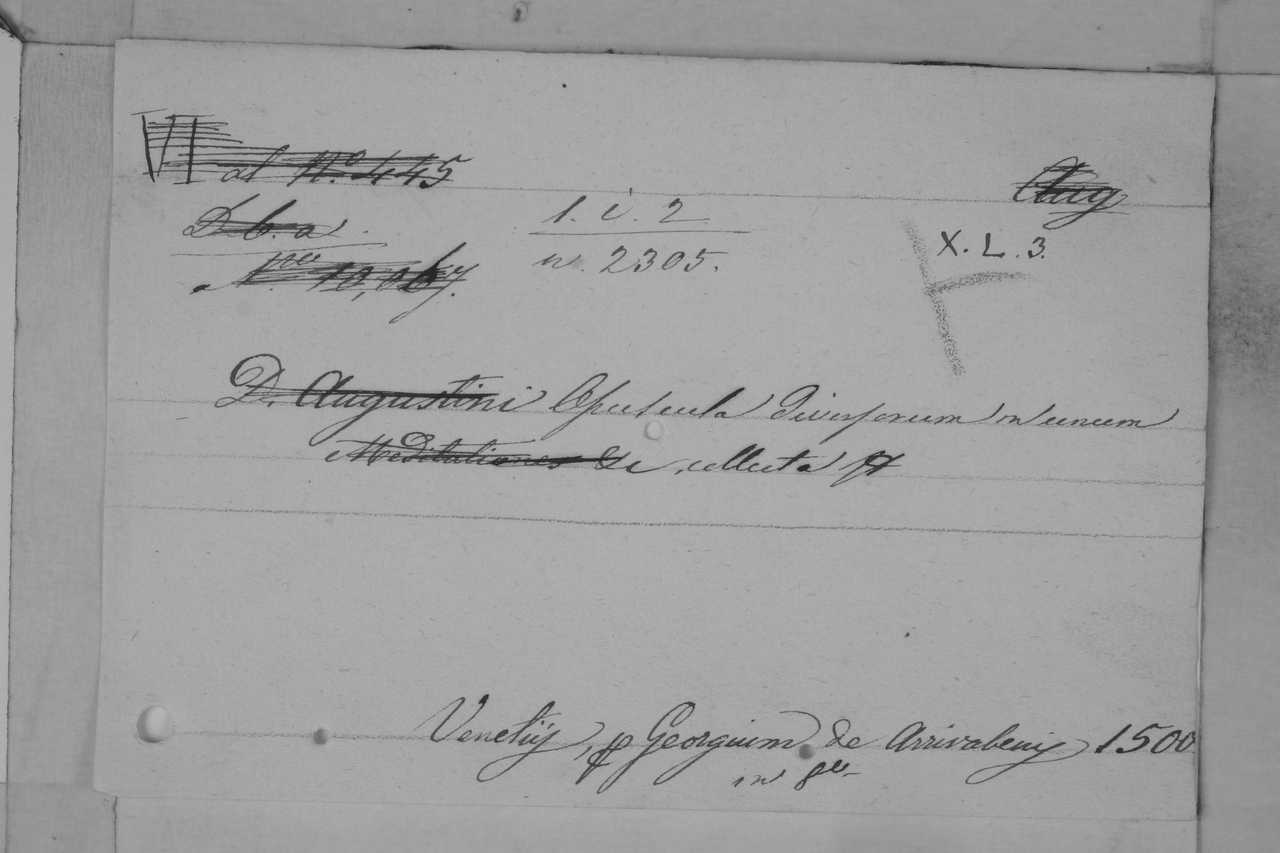 VI al Nº. 445
Aug
D. b. a.
1. i. 2
X. L. 3.
10,067.
n. 2305.
D. Augustini Opuscula diversorum in unum
Meditationes &c collecta
Venetiis, p Georgium de Arrivabenis 1500
in 8º